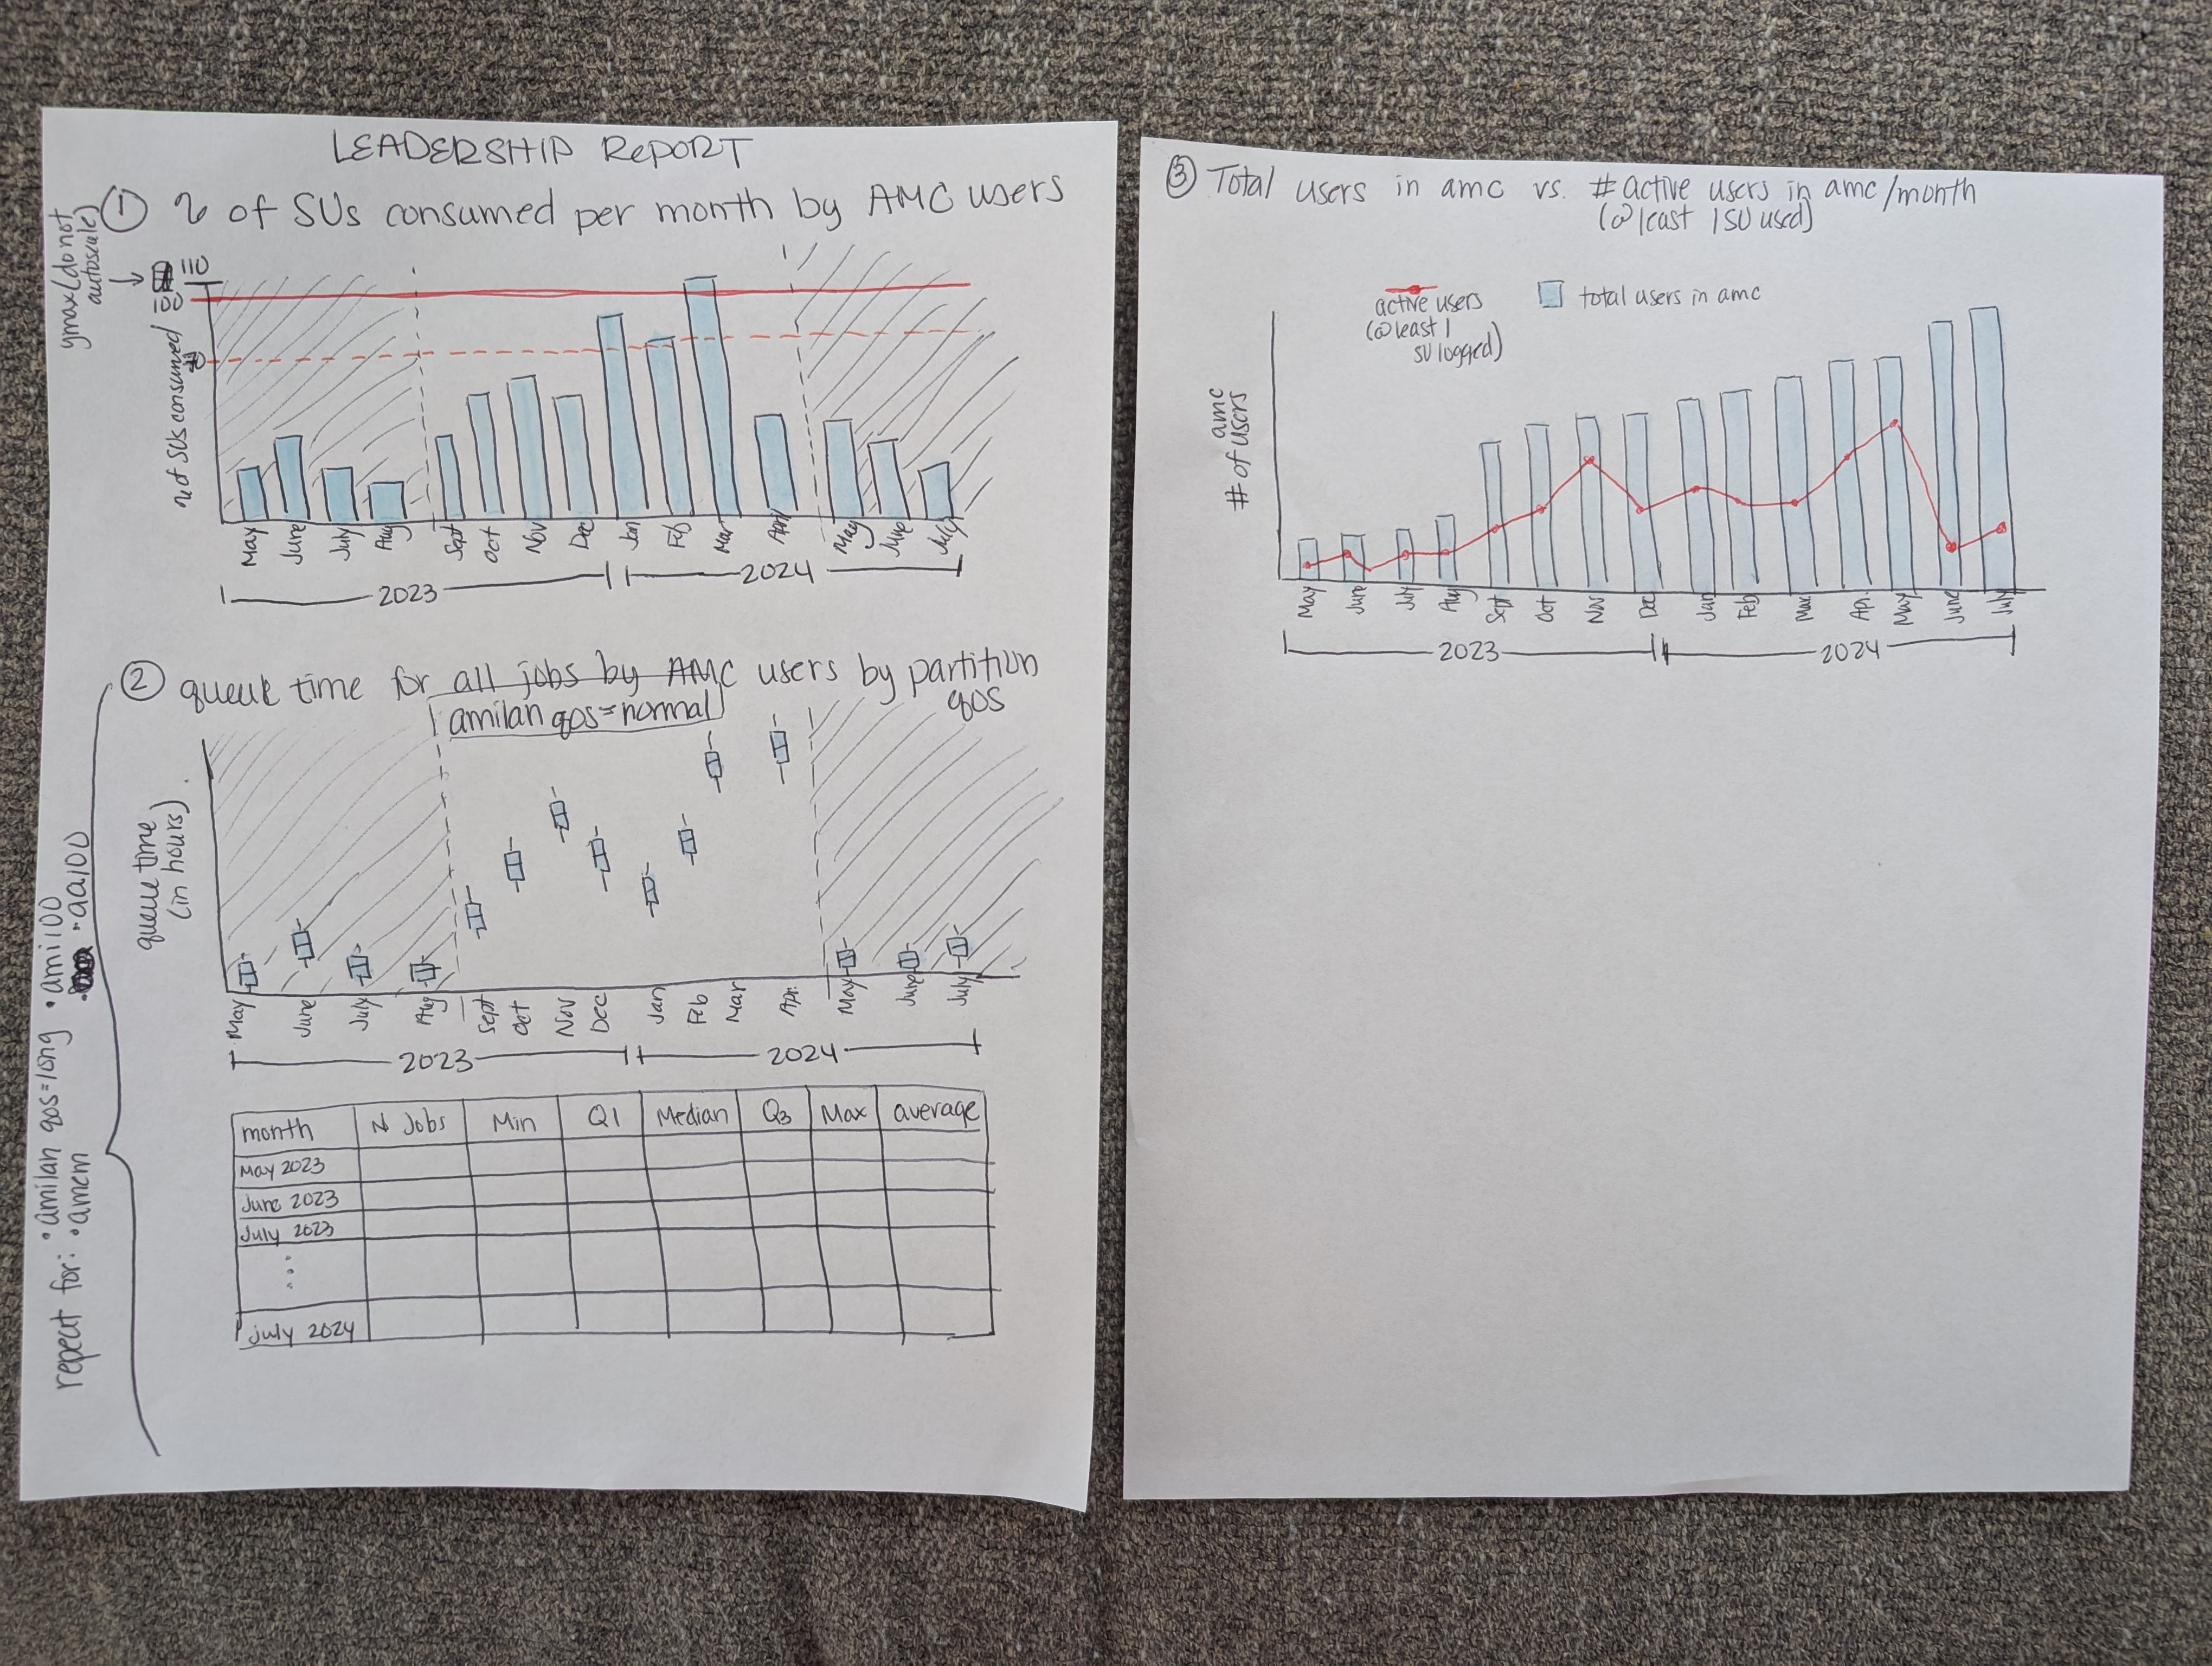 LEADERSHIP REPORT
① % of SUs consumed per month by AMC users
ymax (do not
autoscale)
110
100
% of SUs consumed
May June July Aug Sept Oct Nov Dec Jan Feb Mar April May June July
2023 2024
② queue time for all jobs by AMC users by partition
qos
amilan qos=normal
queue time
(in hours)
May June July Aug Sept Oct Nov Dec Jan Feb Mar Apr. May June July
2023 2024
month N Jobs Min Q1 Median Q3 Max average
May 2023
June 2023
July 2023
July 2024
repeat for: •amilan qos=long •ami100
•amem •aa100
③ Total users in amc vs. # active users in amc/month
(@least 1 SU used)
active users
(@least 1
SU logged)
total users in amc
amc
# of users
May June July Aug Sept Oct Nov Dec Jan Feb Mar. Apr. May June July
2023 2024